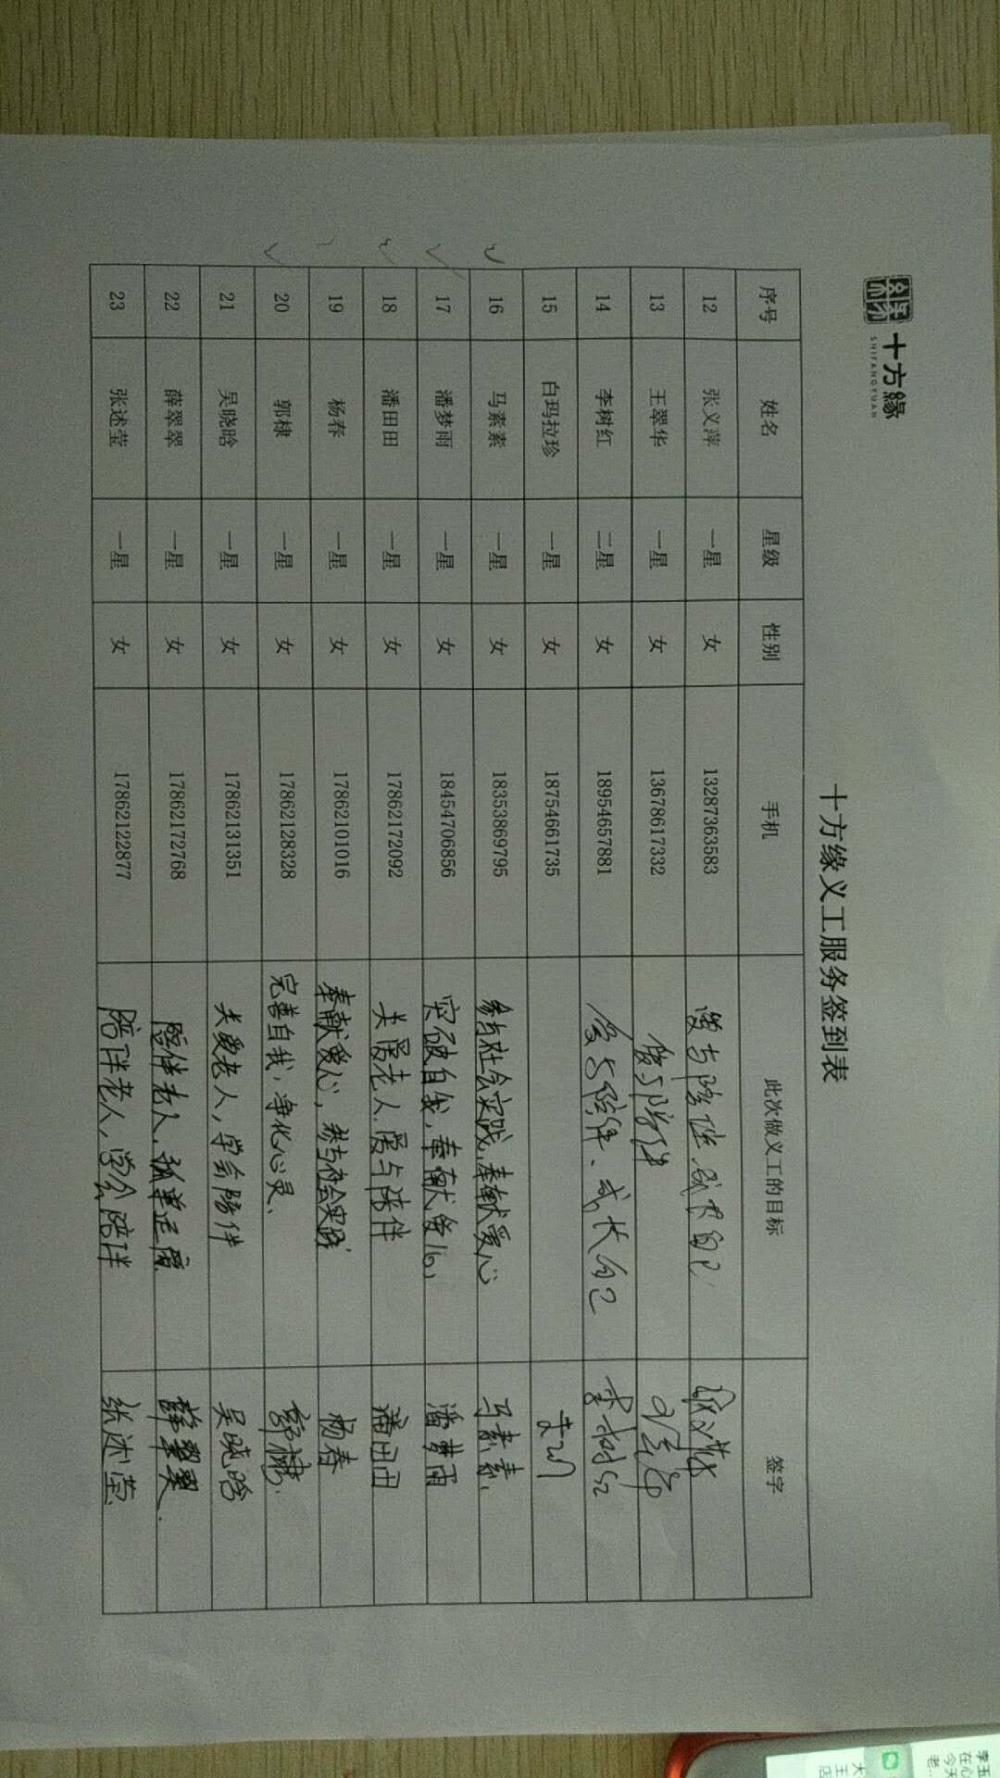 十方緣
SHIFANGYUAN
十方缘义工服务签到表
序号 姓名 星级 性别 手机 此次做义工的目标 签字
12 张义萍 一星 女 13287363583
13 王翠华 一星 女 13678617332 爱与陪伴
14 李树红 二星 女 18954657881 爱与陪伴、成长自己 李树红
15 白玛拉珍 一星 女 18754661735
16 马素素 一星 女 18353869795 参与社会实践,奉献爱心 马素素.
17 潘梦雨 一星 女 18454706856 突破自我,奉献爱心, 潘梦雨
18 潘田田 一星 女 17862172092 关爱老人.爱与陪伴 潘田田
19 杨春 一星 女 17862101016 奉献爱心,参与社会实践 杨春
20 郭棣 一星 女 17862128328 完善自我,净化心灵、 郭棣.
21 吴晓晗 一星 女 17862131351 关爱老人,学会陪伴 吴晓晗
22 薛翠翠 一星 女 17862172768 陪伴老人. 薛翠翠.
23 张述莹 一星 女 17862122877 陪伴老人,学会陪伴 张述莹.
李玉
在心
今天
老
大王
店